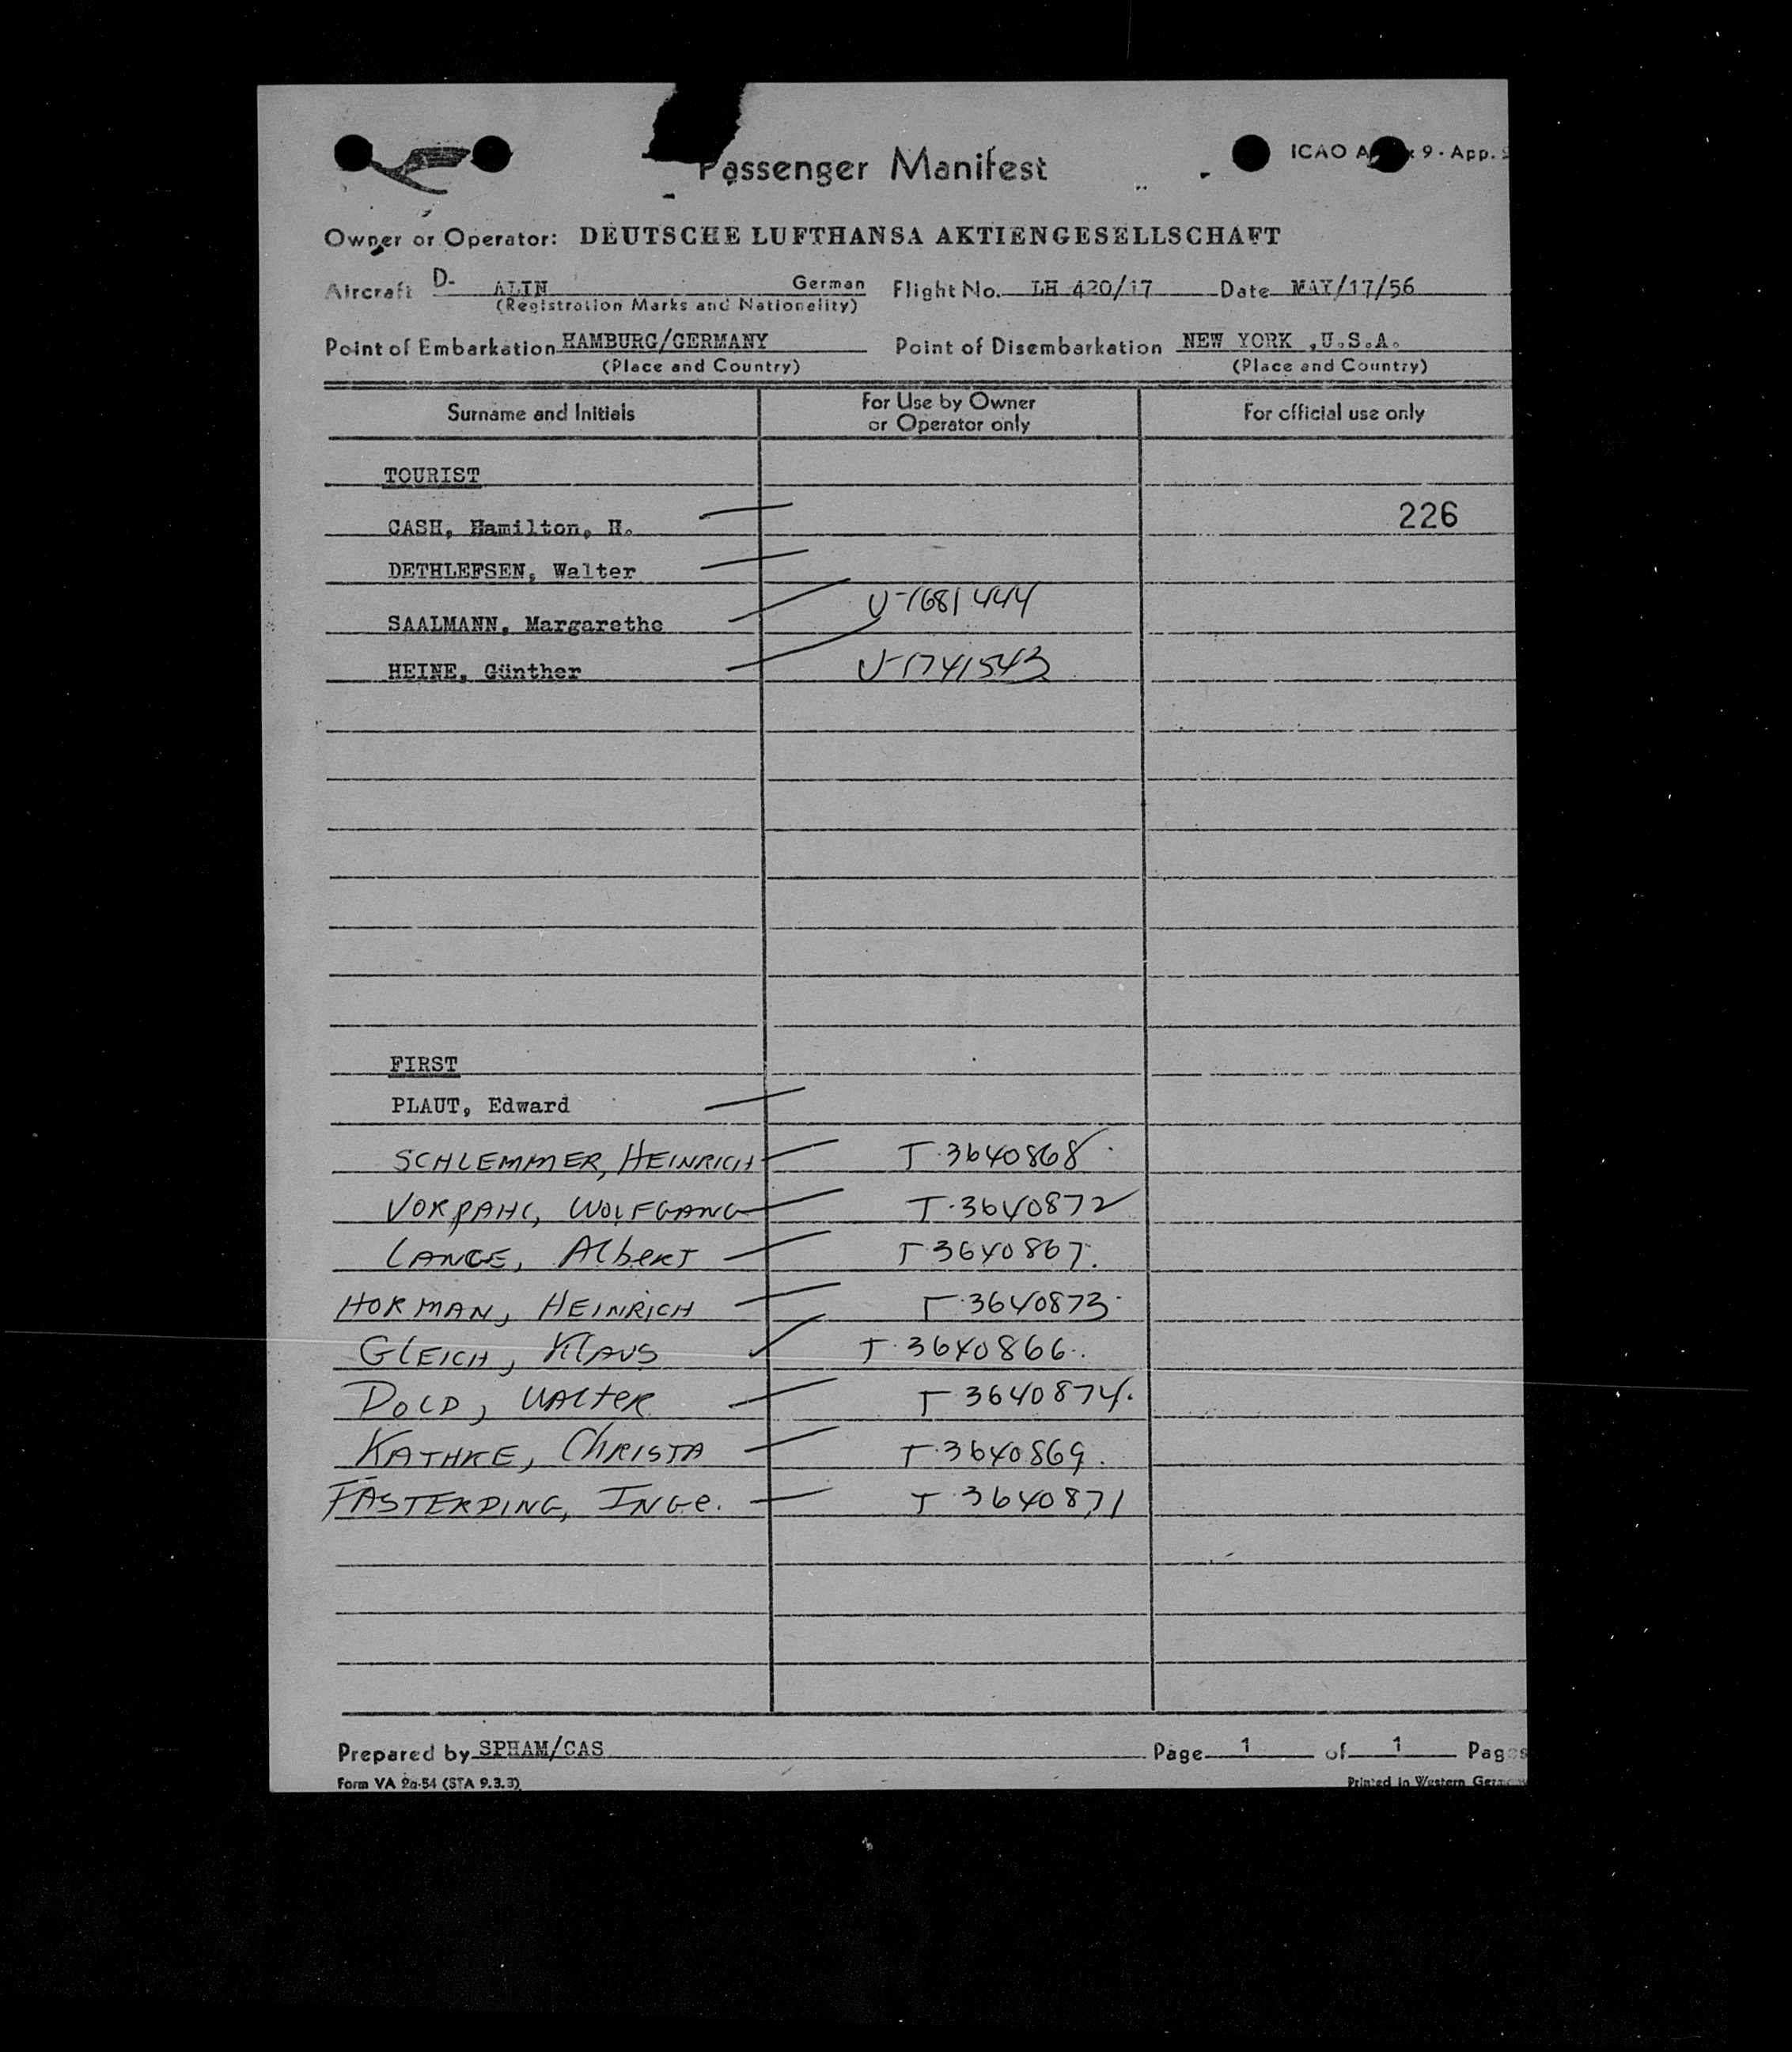 Passenger Manifest
ICAO 9 - App.
Owner or Operator: DEUTSCHE LUFTHANSA AKTIENGESELLSCHAFT
Aircraft D- ALIN German Flight No. LH 420/17 Date MAY/17/56
(Registration Marks and Nationality)
Point of Embarkation HAMBURG/GERMANY Point of Disembarkation NEW YORK ,U.S.A.
(Place and Country) (Place and Country)
Surname and Initials For Use by Owner or Operator only For official use only
TOURIST
CASH, Hamilton, H. 226
DETHLEFSEN, Walter
SAALMANN, Margarethe V-1681444
HEINE, Günther V-1741543
FIRST
PLAUT, Edward
SCHLEMMER, HEINRICH T-3640868
VORPAHL, WOLFGANG T-3640872
LANGE, Albert T-3640867.
HORMAN, HEINRICH T-3640873
GLEICH, KLAUS T-3640866
DOLD, WALTER T-3640874.
KATHKE, CHRISTA T-3640869.
FASTERDING, INGe. T-3640871
Prepared by SPHAM/CAS Page 1 of 1 Pages
Form VA 2a-54 (STA 9.3.3) Printed in Western